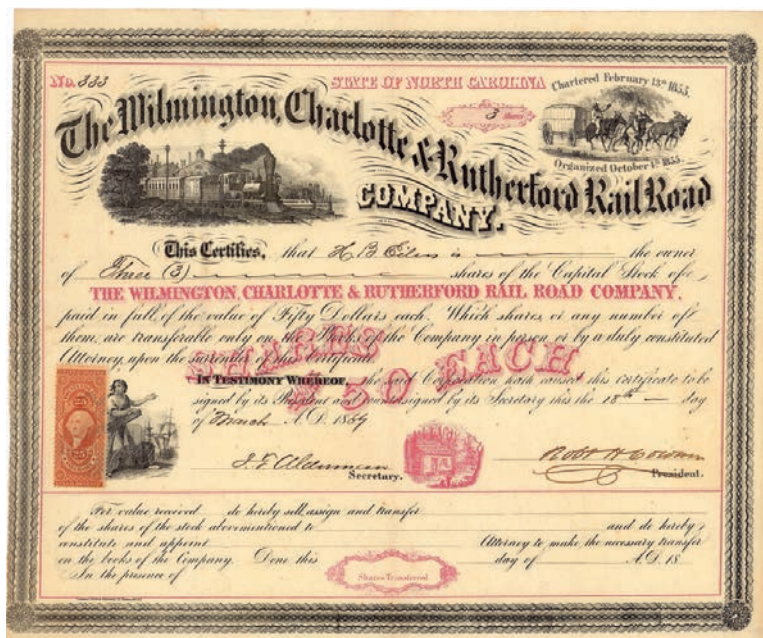 No. 333
STATE OF NORTH CAROLINA
Chartered February 13th 1855.
3 Shares
Organized October 1st 1855
The Wilmington, Charlotte & Rutherford Rail Road
COMPANY.
This Certifies, that H B Eilers is the owner
of Three (3) shares of the Capital Stock of
THE WILMINGTON, CHARLOTTE & RUTHERFORD RAIL ROAD COMPANY,
paid in full of the value of Fifty Dollars each. Which shares, or any number of
them, are transferable only on the Books of the Company in person, or by a duly constituted
Attorney, upon the surrender of this certificate.
SHARES
$50 EACH
IN TESTIMONY WHEREOF, the said Corporation hath caused this certificate to be
signed by its President and countersigned by its Secretary this the 18th day
of March A.D. 1869
25
J. F. Alderman
Secretary.
Robt H Cowan
President.
For value received do hereby sell, assign and transfer
of the shares of the stock abovementioned to and do hereby
constitute and appoint Attorney to make the necessary transfer
on the books of the Company. Done this day of A.D. 18
In the presence of
Shares Transferred